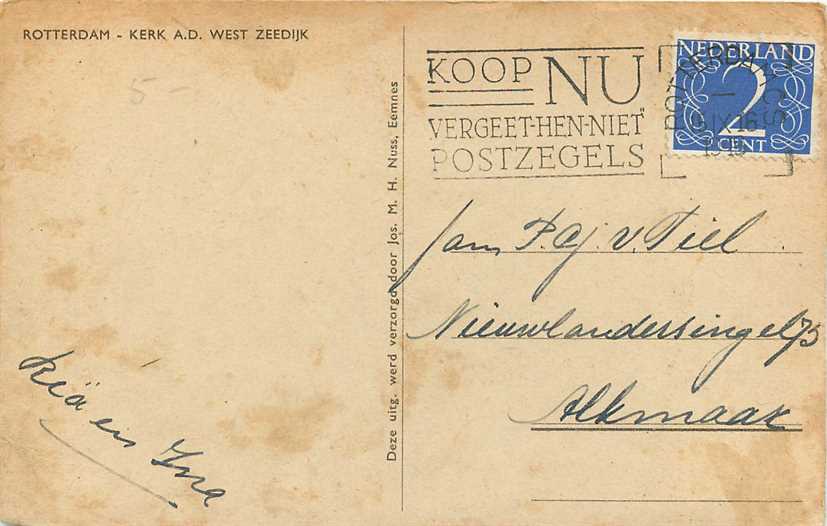 ROTTERDAM - KERK A.D. WEST ZEEDIJK
5-
KOOP NU
VERGEET-HEN-NIET"
POSTZEGELS
NEDERLAND
2
CENT
ROTTERDAM
Deze uitg. werd verzorgd door Jos. M. H. Nuss, Eemnes
Fam P.C.J. v. Tiel
Nieuwlandersingel 75
Alkmaar
Ria en Ina